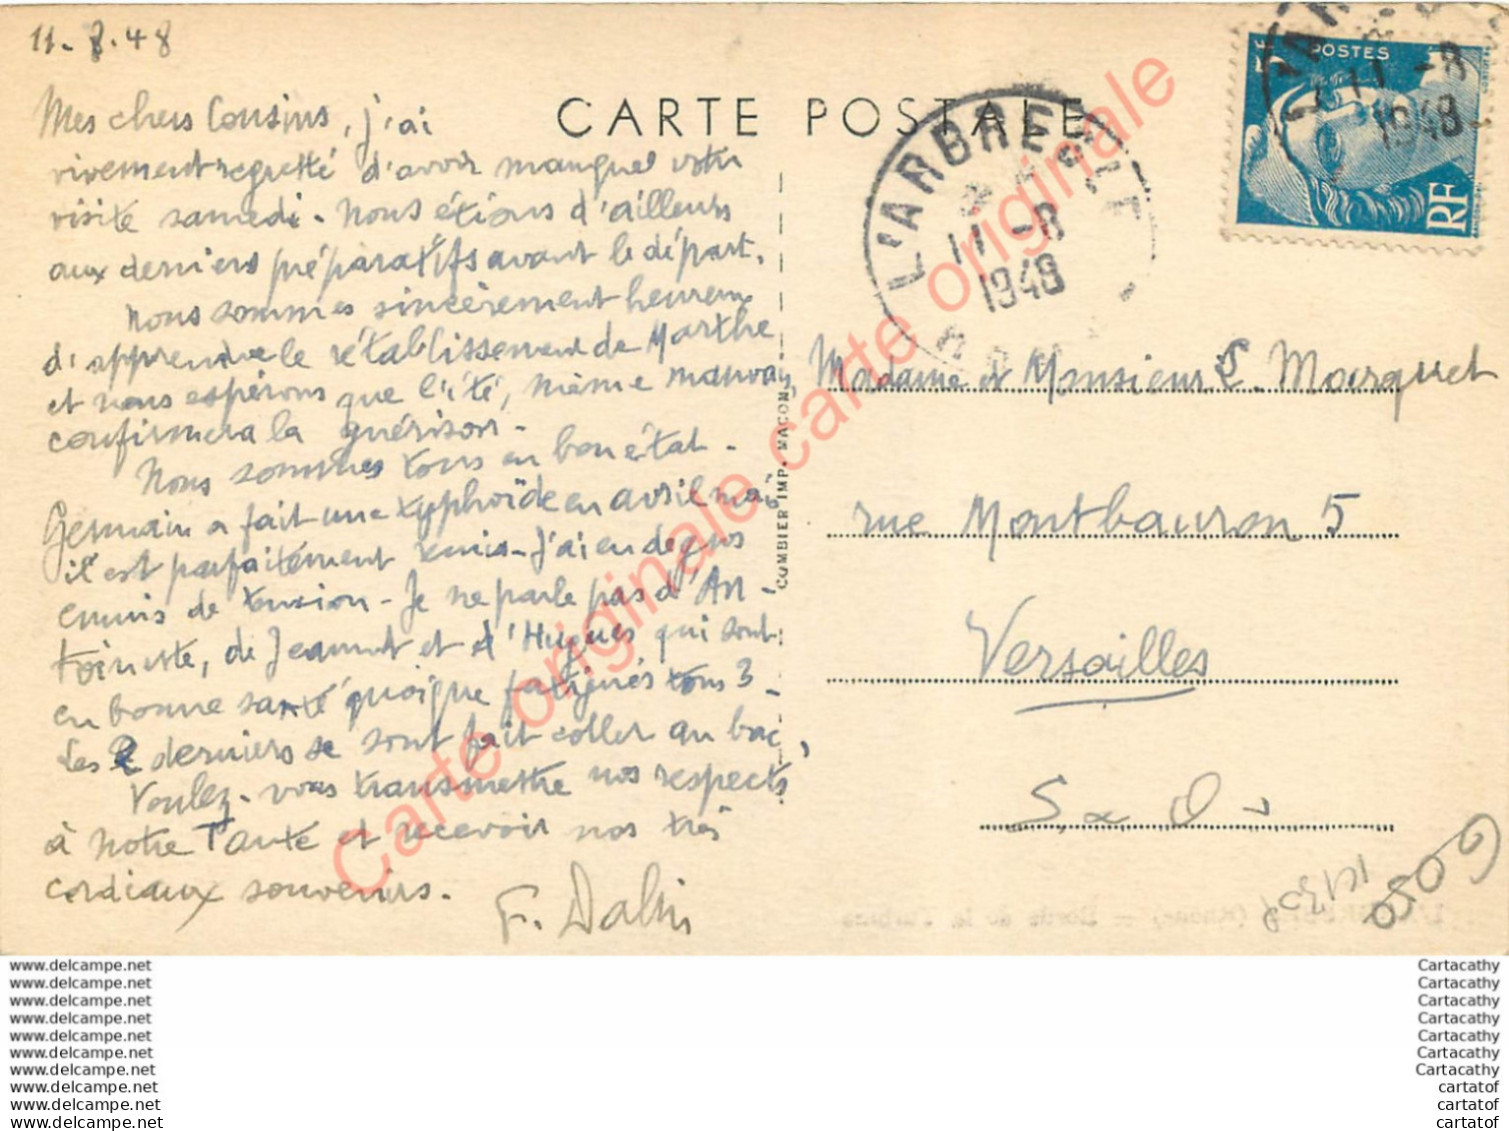 11-8-48
Mes chers Cousins, j'ai
vivement regretté d'avoir manqué votre
visite samedi. Nous étions d'ailleurs
aux derniers préparatifs avant le départ.
Nous sommes sincèrement heureux
d'apprendre le rétablissement de Marthe
et nous espérons que l'été, même mauvais,
confirmera la guérison.
Nous sommes tous en bon état.
Germain a fait une typhoïde en avril mais
il est parfaitement remis. J'ai eu de gros
ennuis de tension. Je ne parle pas d'An-
toinette, de Jeannot et d'Hugues qui sont
en bonne santé quoique fatigués tous 3.
Les 2 derniers se sont fait coller au bac.
Voulez-vous transmettre nos respects
à notre Tante et recevoir nos très
cordiaux souvenirs.
CARTE POSTALE
COMBIER IMP. MACON
L'ARBRESLE
11 -8
1948
POSTES
5F
RF
11 -8
1948
Madame et Monsieur Marquet
rue Montbauron 5
Versailles
S & O
L'ARBRESLE (Rhône) — Bords de la Turdine
Carte originale carte originale
Carte originale
www.delcampe.net
www.delcampe.net
www.delcampe.net
www.delcampe.net
www.delcampe.net
www.delcampe.net
www.delcampe.net
www.delcampe.net
www.delcampe.net
www.delcampe.net
Cartacathy
Cartacathy
Cartacathy
Cartacathy
Cartacathy
Cartacathy
Cartacathy
cartatof
cartatof
cartatof